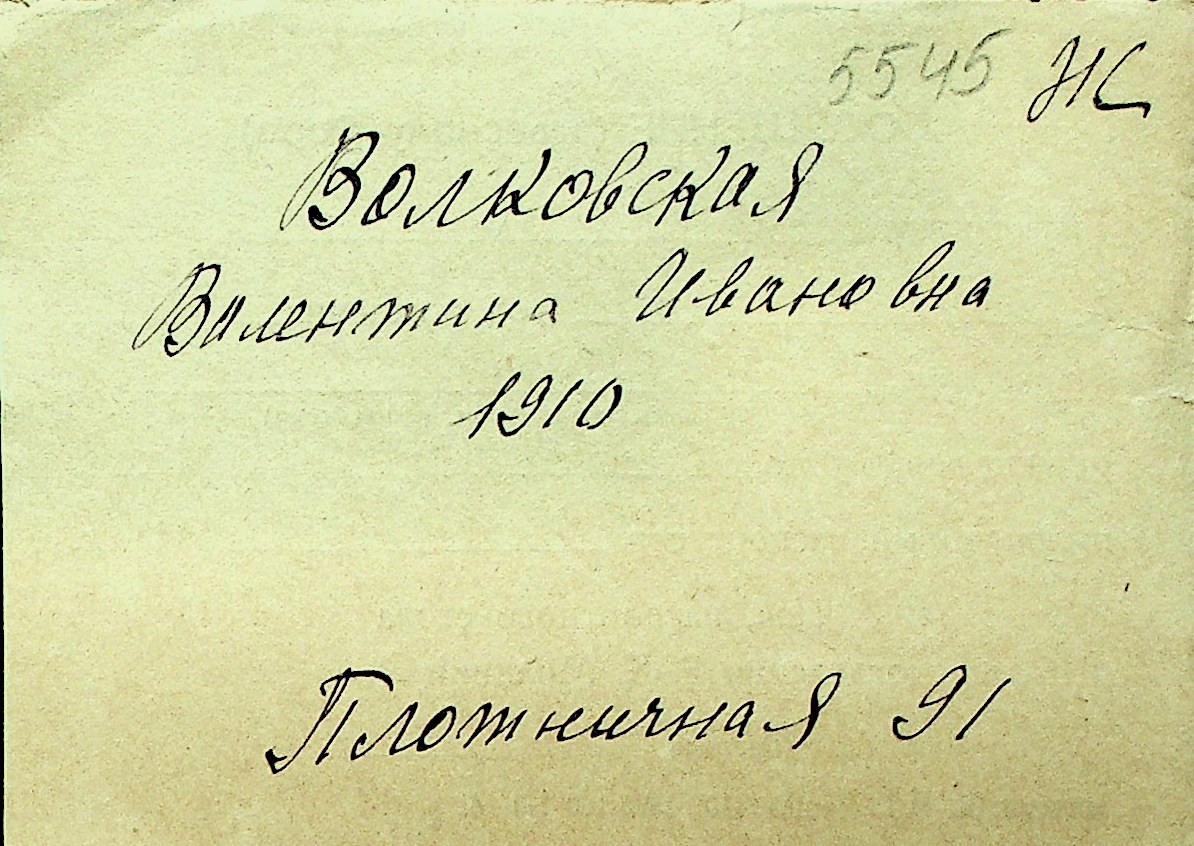 5545 НС
Волковская
Валентина Ивановна
1910
Плотничная 91